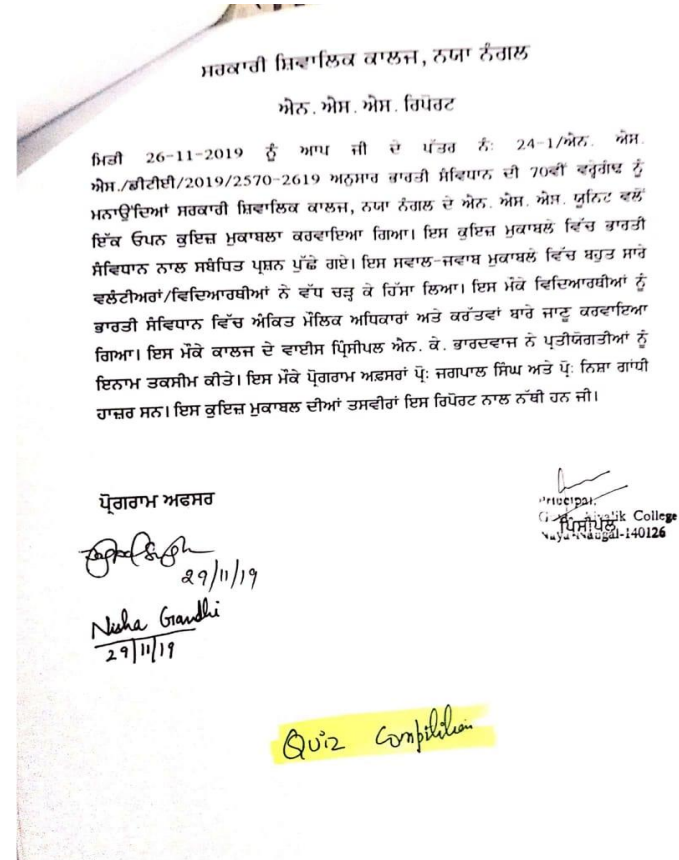 ਸਰਕਾਰੀ ਸ਼ਿਵਾਲਿਕ ਕਾਲਜ, ਨਯਾ ਨੰਗਲ
ਐਨ. ਐਸ. ਐਸ. ਰਿਪੋਰਟ
ਮਿਤੀ 26-11-2019 ਨੂੰ ਆਪ ਜੀ ਦੇ ਪੱਤਰ ਨੰ: 24-1/ਐਨ. ਐਸ.
ਐਸ./ਡੀਟੀਈ/2019/2570-2619 ਅਨੁਸਾਰ ਭਾਰਤੀ ਸੰਵਿਧਾਨ ਦੀ 70ਵੀਂ ਵਰ੍ਹੇਗੰਢ ਨੂੰ
ਮਨਾਉਂਦਿਆਂ ਸਰਕਾਰੀ ਸ਼ਿਵਾਲਿਕ ਕਾਲਜ, ਨਯਾ ਨੰਗਲ ਦੇ ਐਨ. ਐਸ. ਐਸ. ਯੂਨਿਟ ਵਲੋਂ
ਇੱਕ ਓਪਨ ਕੁਇਜ਼ ਮੁਕਾਬਲਾ ਕਰਵਾਇਆ ਗਿਆ। ਇਸ ਕੁਇਜ਼ ਮੁਕਾਬਲੇ ਵਿੱਚ ਭਾਰਤੀ
ਸੰਵਿਧਾਨ ਨਾਲ ਸਬੰਧਿਤ ਪ੍ਰਸ਼ਨ ਪੁੱਛੇ ਗਏ। ਇਸ ਸਵਾਲ-ਜਵਾਬ ਮੁਕਾਬਲੇ ਵਿੱਚ ਬਹੁਤ ਸਾਰੇ
ਵਲੰਟੀਅਰਾਂ/ਵਿਦਿਆਰਥੀਆਂ ਨੇ ਵੱਧ ਚੜ੍ਹ ਕੇ ਹਿੱਸਾ ਲਿਆ। ਇਸ ਮੌਕੇ ਵਿਦਿਆਰਥੀਆਂ ਨੂੰ
ਭਾਰਤੀ ਸੰਵਿਧਾਨ ਵਿੱਚ ਅੰਕਿਤ ਮੌਲਿਕ ਅਧਿਕਾਰਾਂ ਅਤੇ ਕਰੱਤਵਾਂ ਬਾਰੇ ਜਾਣੂ ਕਰਵਾਇਆ
ਗਿਆ। ਇਸ ਮੌਕੇ ਕਾਲਜ ਦੇ ਵਾਈਸ ਪ੍ਰਿੰਸੀਪਲ ਐਨ. ਕੇ. ਭਾਰਦਵਾਜ ਨੇ ਪ੍ਰਤੀਯੋਗਤੀਆਂ ਨੂੰ
ਇਨਾਮ ਤਕਸੀਮ ਕੀਤੇ। ਇਸ ਮੌਕੇ ਪ੍ਰੋਗਰਾਮ ਅਫ਼ਸਰਾਂ ਪ੍ਰੋ: ਜਗਪਾਲ ਸਿੰਘ ਅਤੇ ਪ੍ਰੋ: ਨਿਸ਼ਾ ਗਾਂਧੀ
ਹਾਜ਼ਰ ਸਨ। ਇਸ ਕੁਇਜ਼ ਮੁਕਾਬਲ ਦੀਆਂ ਤਸਵੀਰਾਂ ਇਸ ਰਿਪੋਰਟ ਨਾਲ ਨੱਥੀ ਹਨ ਜੀ।
ਪ੍ਰੋਗਰਾਮ ਅਫਸਰ
29/11/19
Nisha Gandhi
29/11/19
Principal,
College
ਪ੍ਰਿੰਸੀਪਲ
Naya Nangal-140126
Quiz Compitition